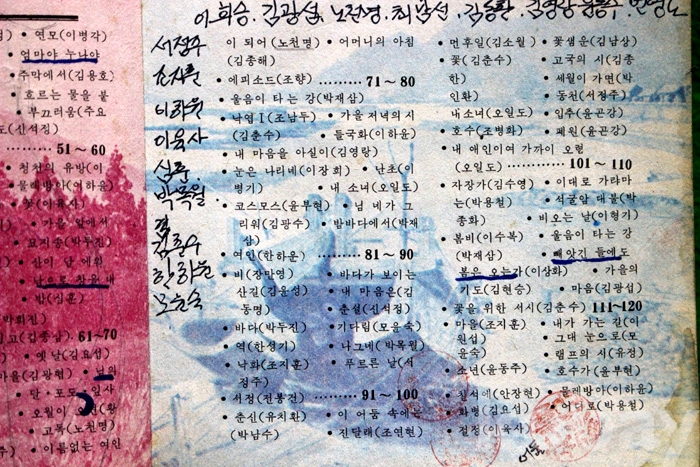 이희승. 김광섭. 노천명. 최남선.
서정주
이하윤
이육사
심훈
박목월
김춘수
한하운
모윤숙
• 연모(이병각)
• 엄마야 누나야
• 주막에서(김용호)
• 흐르는 물을 붙
• 부끄러움(주요
도(신석정)
51～60
• 청천의 유방(이
• 물레방아(이하윤)
• 꽃(이육사)
• 가을 앞에서
• 묘지송(박두진)
• 산이 날 에워
남으로 창을 내
• 밤(심훈)
61～70
• 옛 날(김요섭)
마을(김광현) • 님의
• 단·포도
• 고독(노천명)
• 이름없는 여인
이 되어(노천명) • 어머니의 아침
(김종해)
• 에피소드(조향) 71～80
• 울음이 타는 강(박재삼)
• 낙엽Ⅰ(조남두) • 가을 저녁의 시
(김춘수) • 들국화(이하윤)
• 내 마음을 아실이(김영랑)
• 눈은 나리네(이장희) • 난초(이
병기) • 내 소녀(오일도)
• 코스모스(윤부현) • 넘 네가 그
리워(김광수) • 밤바다에서(박재
삼)
• 여인(한하운) 81～90
• 비(장만영) • 바다가 보이는
산길(김윤성) • 내 마음은(김
동명) • 춘설(신석정)
• 바다(박두진) • 기다림(모윤숙)
• 역(한성기) • 나그네(박목월)
• 낙화(조지훈) • 푸르른 날(서
정주)
• 서정(전봉건) 91～100
• 춘신(유치환) • 이 어둠 속에는
(박남수) • 진달래(조연현)
• 먼후일(김소월) • 꽃샘운(김남상)
• 꽃(김춘수) • 고국의 시(김종
한) • 세월이 가면(박
인환) • 동천(서정주)
• 내소녀(오일도) • 입추(윤곤강)
• 호수(조병화) • 폐원(윤곤강)
• 내 애인이여 가까이 오렴
(오일도) 101～110
• 자장가(김수영) • 이대로 가랴마
는(박용철) • 석굴암 대불(박
종화) • 비오는 날(이형기)
• 봄비(이수복) • 울음이 타는 강
(박재삼) • 빼앗긴 들에도
봄은 오는가(이상화) • 가을의
기도(김현승) • 마음(김광섭)
• 꽃을 위한 서시(김춘수) 111～120
• 마을(조지훈) • 내가 가는 길(이
원섭) • 그대 눈으로(모
윤숙) • 램프의 시(유정)
• 소년(윤동주) • 호수가(윤부현)
• 칠석에(안장현) • 물레방아(이하윤)
• 화병(김요섭) • 어디로(박용철)
• 절정(이육사)